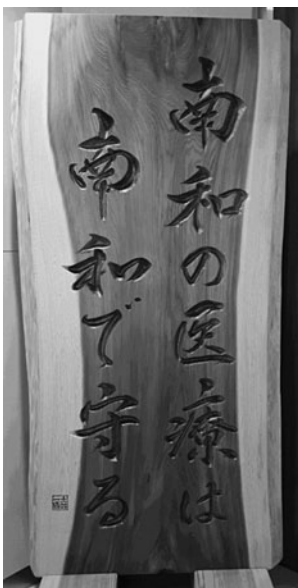 南和の医療は
南和で守る